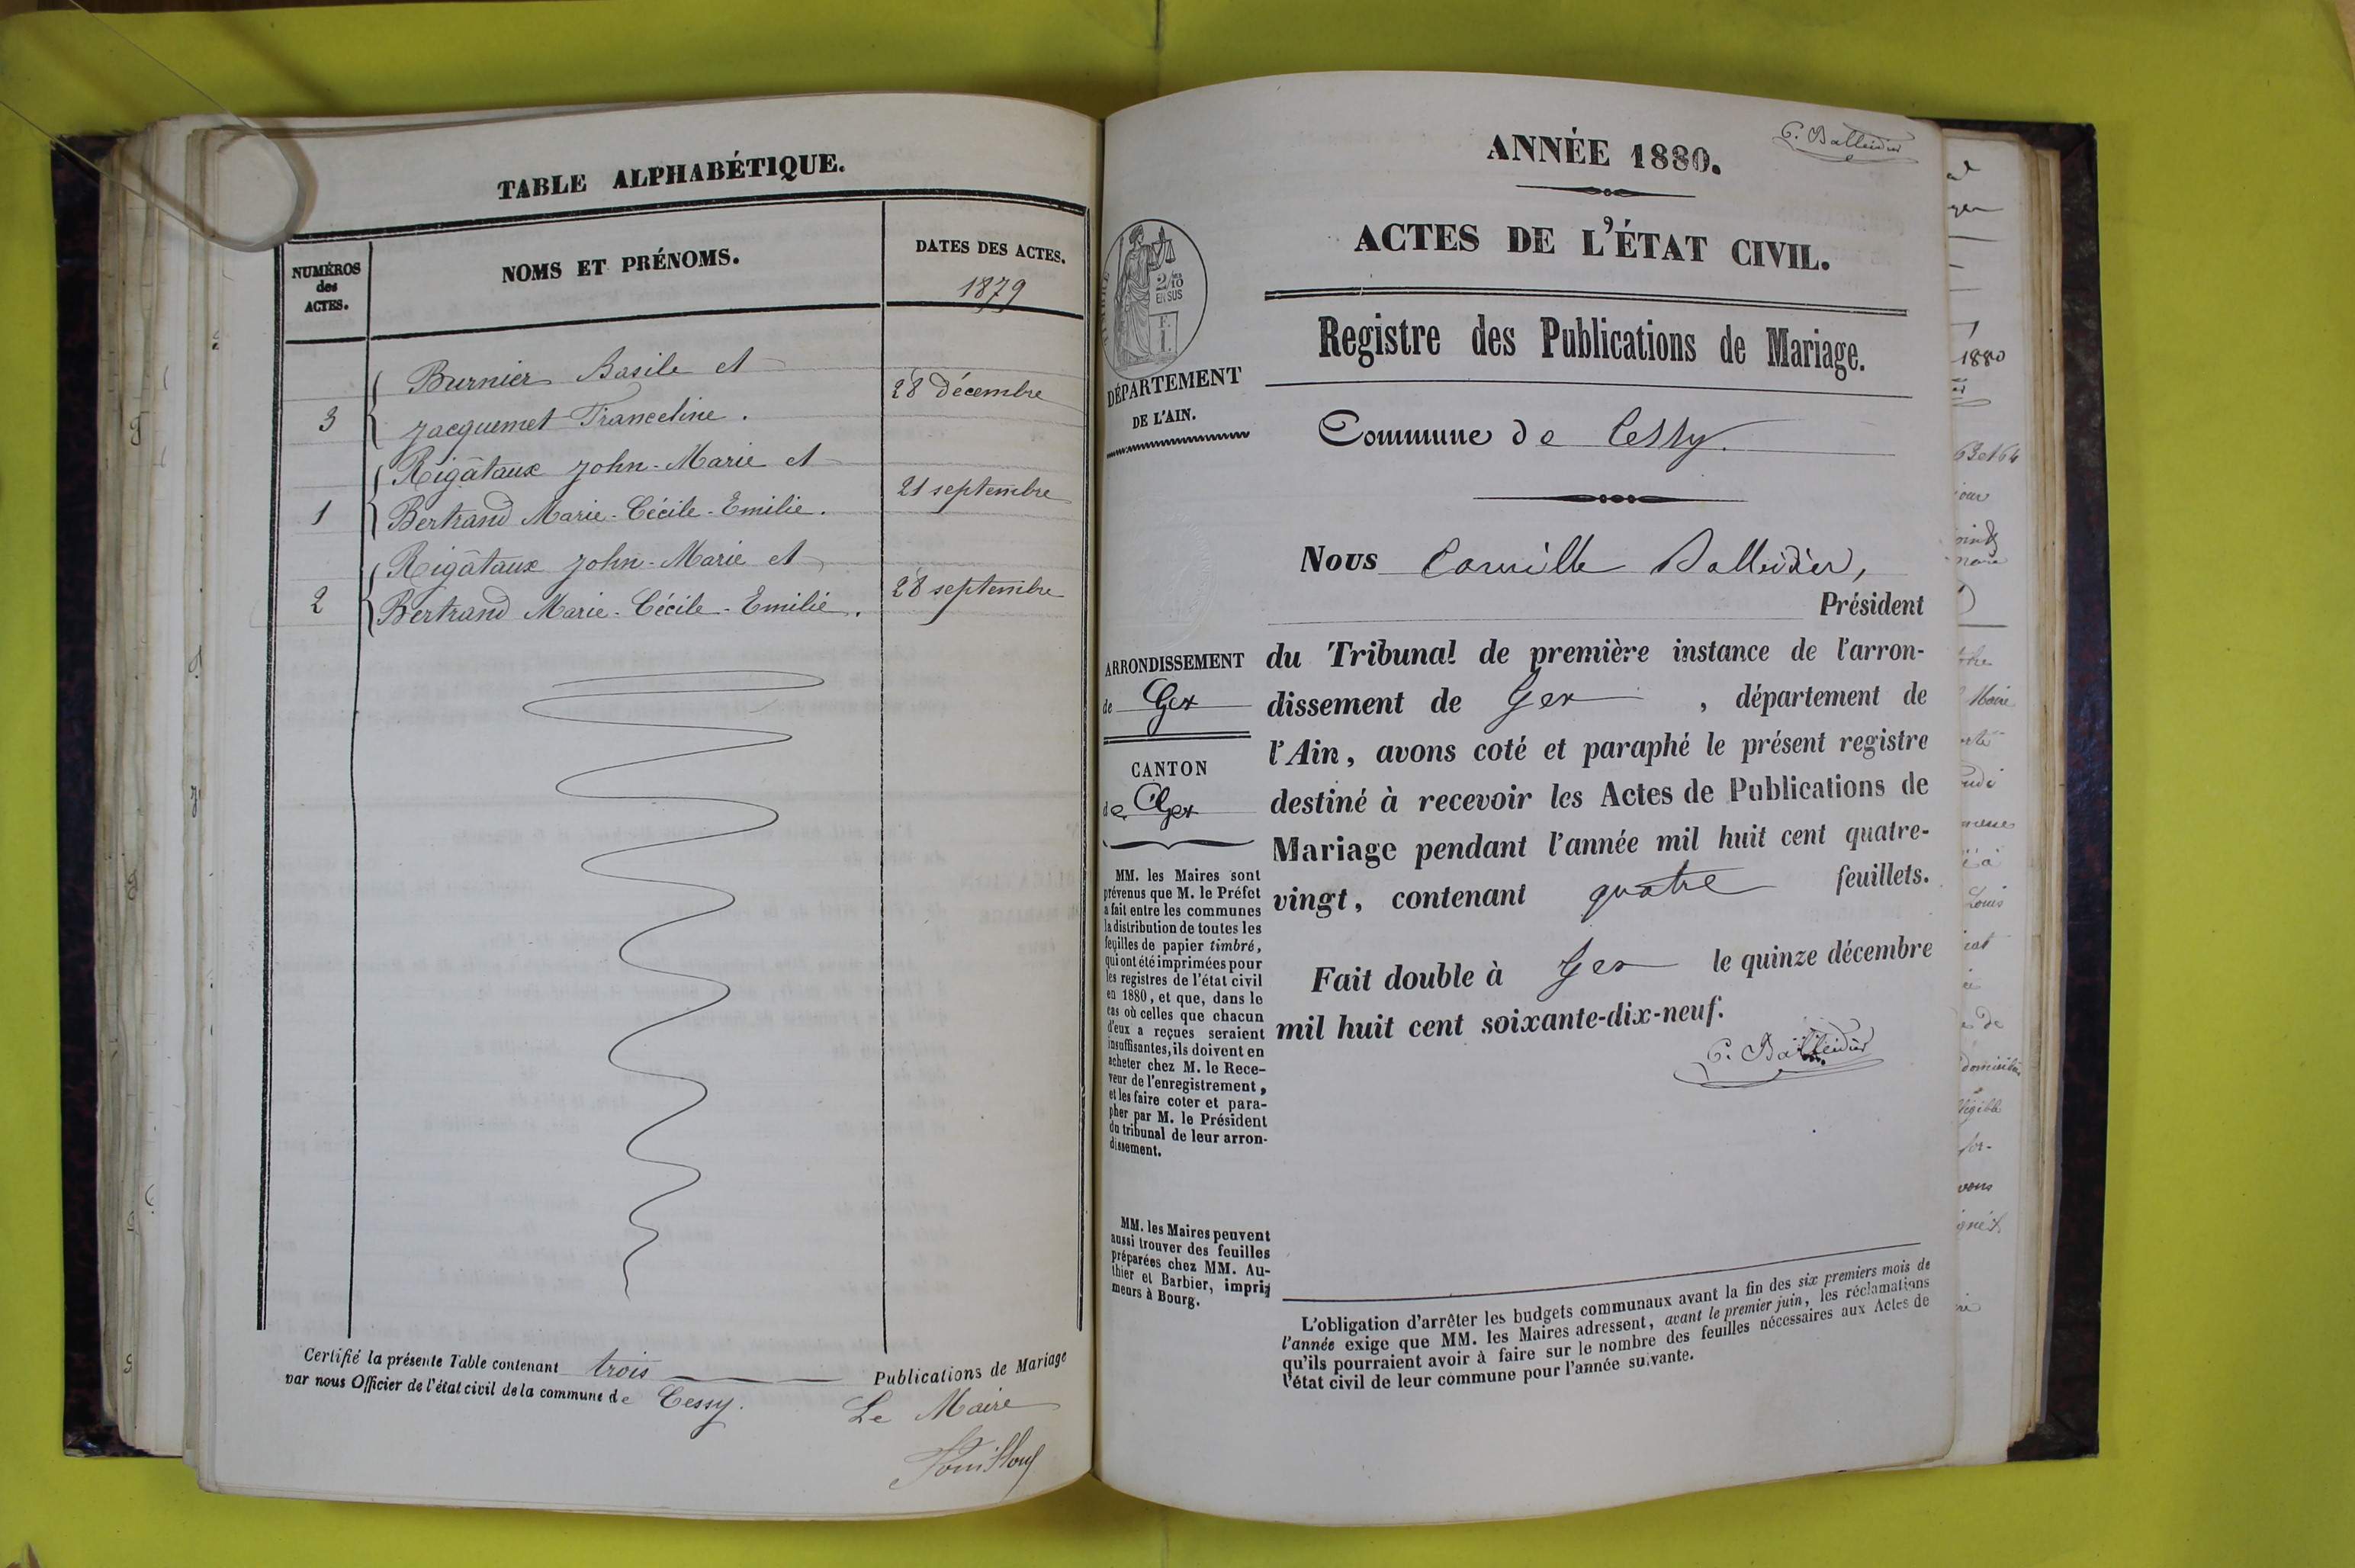 TABLE ALPHABÉTIQUE.
NUMÉROS
des
ACTES.
NOMS ET PRÉNOMS.
DATES DES ACTES.
1879
Burnier Basile et
3 Jacquemet Franceline.
28 décembre
Rigâtaux John-Marie et
1 Bertrand Marie-Cécile-Emilie.
21 septembre
Rigâtaux John-Marie et
2 Bertrand Marie-Cécile-Emilie.
28 septembre
Certifié la présente Table contenant trois Publications de Mariage
par nous Officier de l'état civil de la commune de Cessy.
Le Maire
C. Balleidier
ANNÉE 1880.
ACTES DE L'ÉTAT CIVIL.
2/10
EN SUS
F.
1.
DÉPARTEMENT
DE L'AIN.
Registre des Publications de Mariage.
Commune de Cessy.
Nous Camille Balleidier,
Président
ARRONDISSEMENT
de Gex
CANTON
de Gex
du Tribunal de première instance de l'arron-
dissement de Gex , département de
l'Ain, avons coté et paraphé le présent registre
destiné à recevoir les Actes de Publications de
Mariage pendant l'année mil huit cent quatre-
vingt, contenant quatre feuillets.
Fait double à Gex le quinze décembre
mil huit cent soixante-dix-neuf.
C. Balleidier
MM. les Maires sont
prévenus que M. le Préfet
a fait entre les communes
la distribution de toutes les
feuilles de papier timbré,
qui ont été imprimées pour
les registres de l'état civil
en 1880, et que, dans le
cas où celles que chacun
d'eux a reçues seraient
insuffisantes, ils doivent en
acheter chez M. le Rece-
veur de l'enregistrement,
et les faire coter et para-
pher par M. le Président
du tribunal de leur arron-
dissement.
MM. les Maires peuvent
aussi trouver des feuilles
préparées chez MM. Au-
thier et Barbier, impri-
meurs à Bourg.
L'obligation d'arrêter les budgets communaux avant la fin des six premiers mois de
l'année exige que MM. les Maires adressent, avant le premier juin, les réclamations
qu'ils pourraient avoir à faire sur le nombre des feuilles nécessaires aux Actes de
l'état civil de leur commune pour l'année suivante.
1880
Maire
Louis